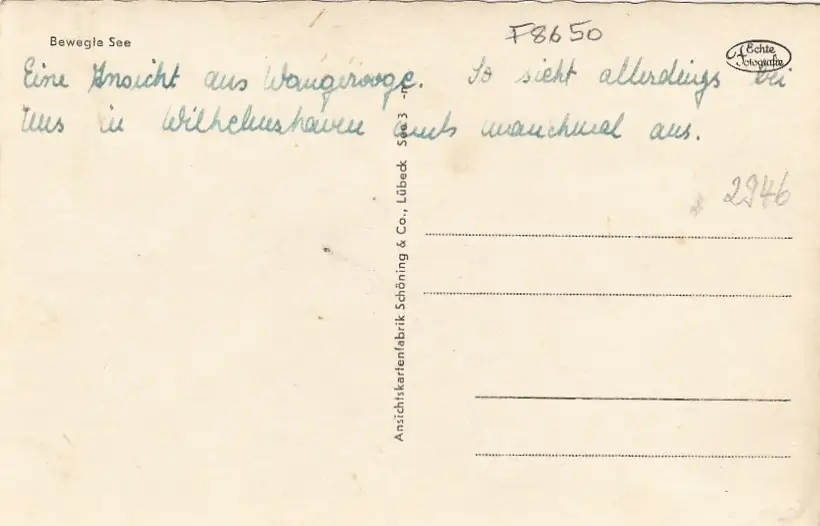 F8650
Bewegte See
Echte
Fotografie
Eine Ansicht aus Wangerooge. So sieht allerdings bei
uns in Wilhelmshaven auch manchmal aus.
2946
Ansichtskartenfabrik Schöning & Co., Lübeck See 3